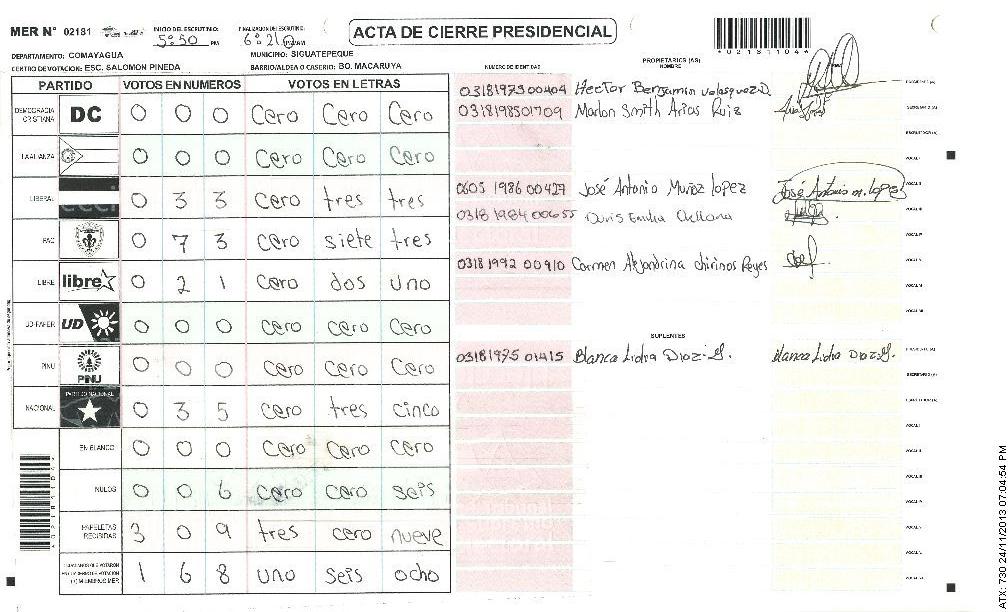 MER N° 02181
INICIO DEL ESCRUTINIO:
5:50 PM
FINALIZACION DEL ESCRUTINIO:
6:21 PM/AM
ACTA DE CIERRE PRESIDENCIAL
*02181104*
DEPARTAMENTO: COMAYAGUA
MUNICIPIO: SIGUATEPEQUE
CENTRO DE VOTACION: ESC. SALOMON PINEDA
BARRIO/ALDEA O CASERIO: BO. MACARUYA
PARTIDO VOTOS EN NUMEROS VOTOS EN LETRAS
DEMOCRACIA CRISTIANA DC 0 0 0 Cero Cero Cero
LA ALIANZA 0 0 0 Cero Cero Cero
LIBERAL 0 3 3 Cero tres tres
PAC 0 7 3 cero siete tres
LIBRE libre 0 2 1 Cero dos uno
UD-FAPER UD 0 0 0 cero cero Cero
PINU PINU 0 0 0 Cero Cero Cero
NACIONAL PARTIDO NACIONAL 0 3 5 cero tres cinco
EN BLANCO 0 0 0 Cero Cero Cero
NULOS 0 0 6 Cero Cero seis
PAPELETAS RECIBIDAS 3 0 9 tres cero nueve
1 6 8 uno seis ocho
NUMERO DE IDENTIDAD
PROPIETARIOS (AS)
NOMBRE
0318197300404 Hector Benjamin Velasquez D.
0318198501709 Marlon Smith Arias Ruiz
0605 1986 00427 José Antonio Muñoz Lopez José Antonio m. Lopez
0318 1984 00655 Doris Emilia Orellana
0318 1992 00910 Carmen Alejandrina Chirinos Reyes
SUPLENTES
03181975 01415 Blanca Lidia Diaz. G. Blanca Lidia Diaz G.
ATX: 730 24/11/2013 07:04:54 PM